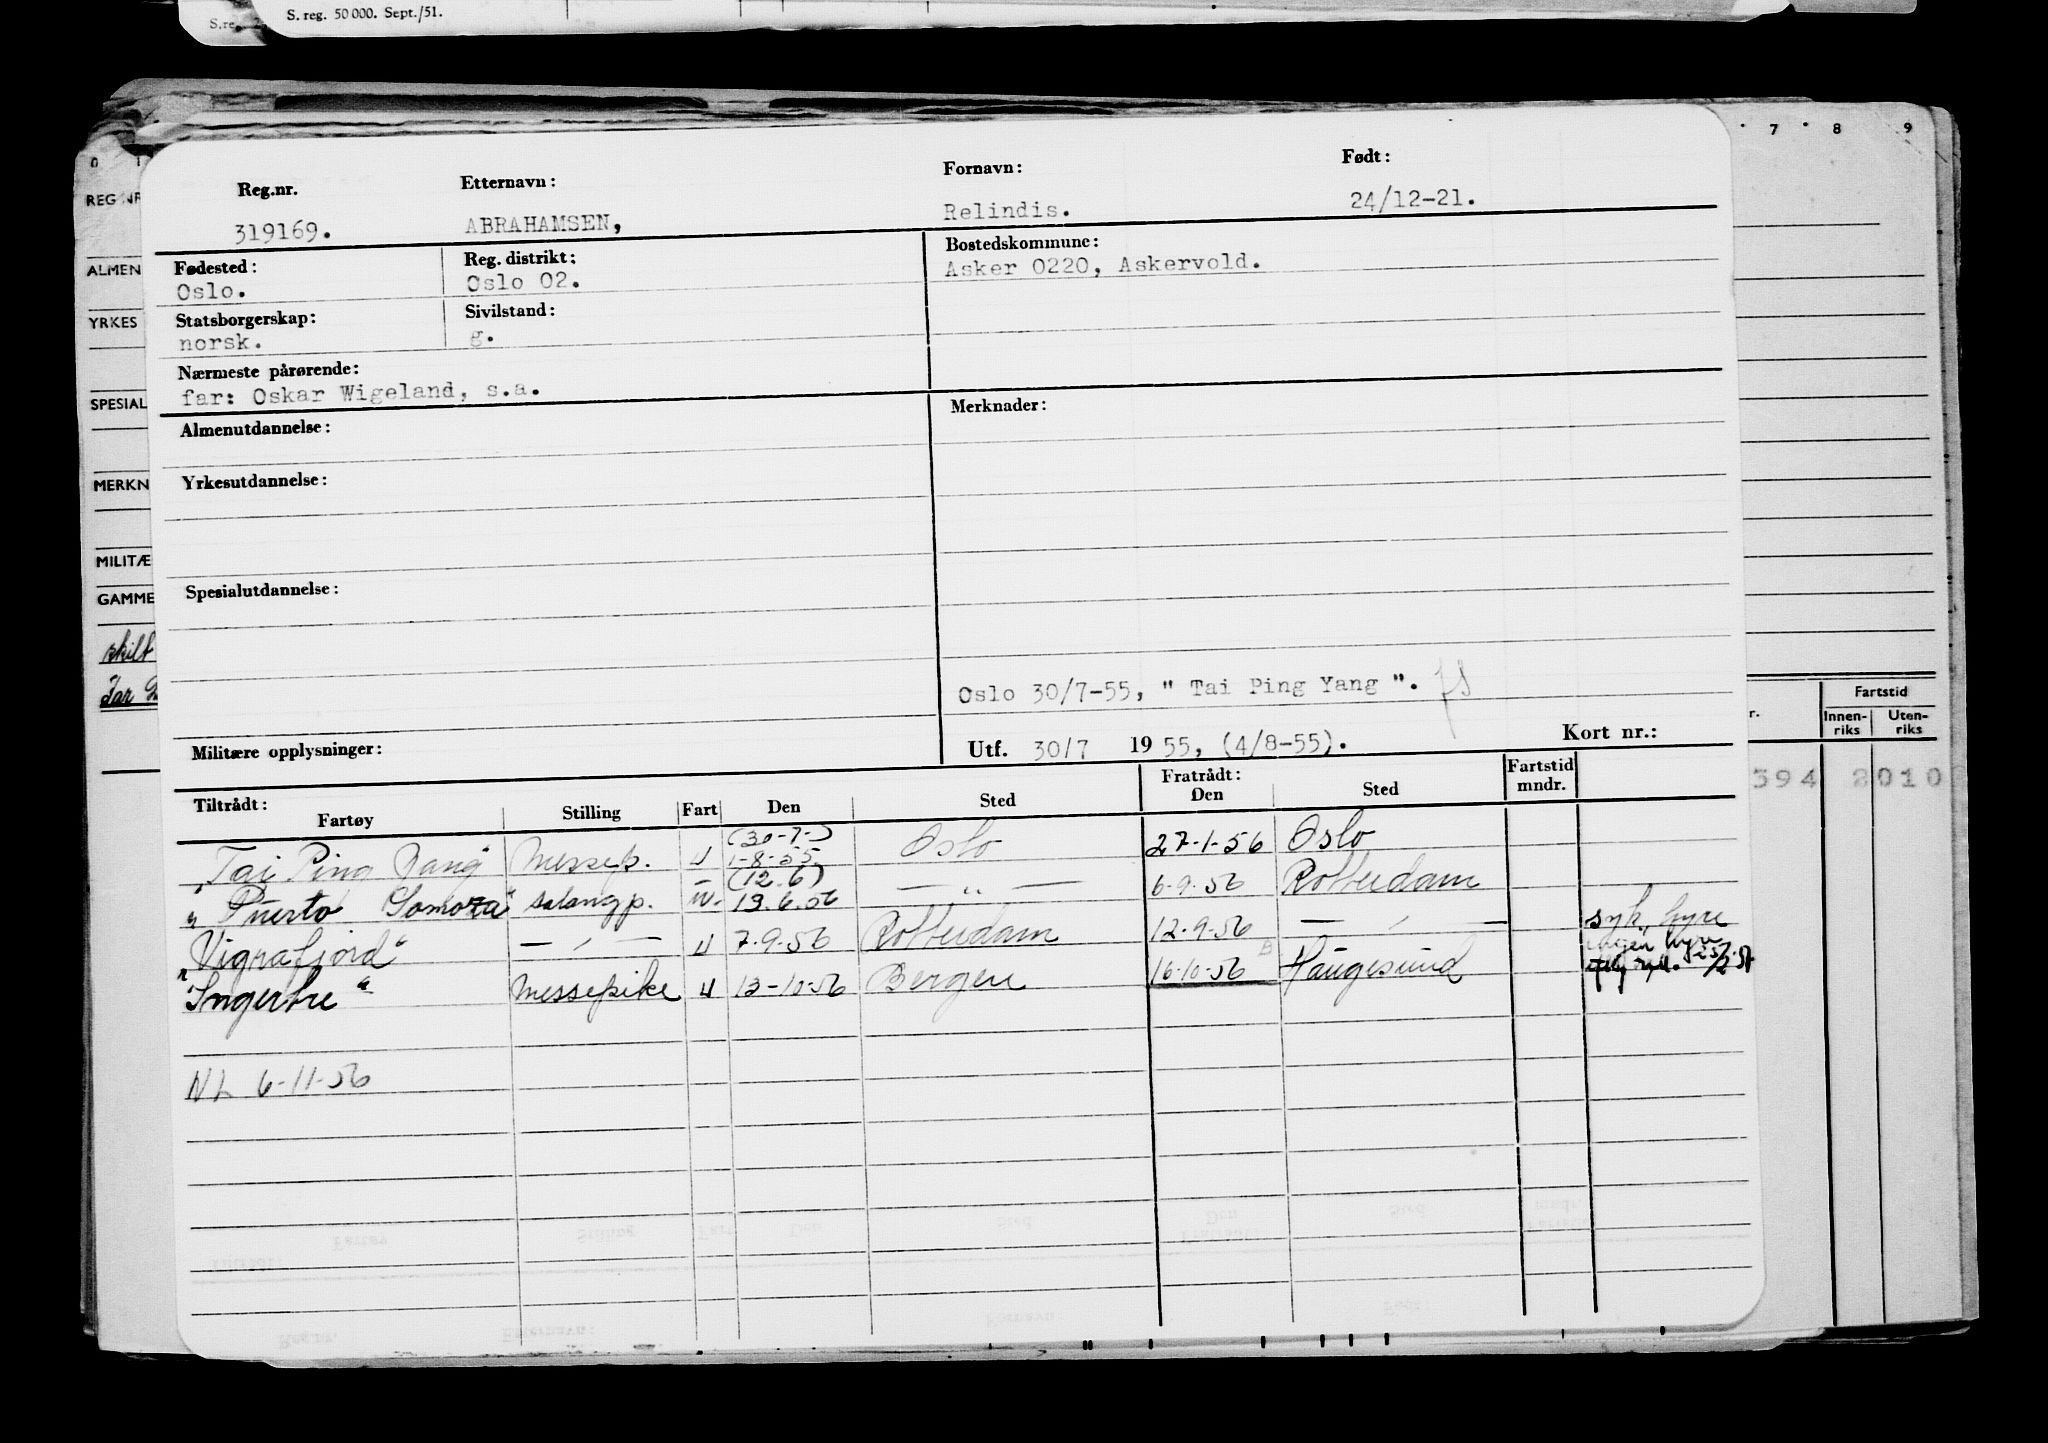 S. reg. 50 000. Sept./51.
S.re
0 1 7 8 9
Reg.nr. Etternavn: Fornavn: Født:
319169. ABRAHAMSEN, Relindis. 24/12-21.
REG NR
Fødested: Reg. distrikt: Bostedskommune:
Oslo. Oslo 02. Asker 0220, Askervold.
ALMEN
Statsborgerskap: Sivilstand:
norsk. g.
YRKES
Nærmeste pårørende:
far: Oskar Wigeland, s.a.
SPESIAL
Almenutdannelse: Merknader:
Yrkesutdannelse:
MERKN
MILITÆ
Spesialutdannelse:
GAMME
skilt
Far
Oslo 30/7-55, " Tai Ping Yang ".
Militære opplysninger: Utf. 30/7 1955, (4/8-55). Kort nr.:
r. Fartstid
Innen-riks Uten-riks
394 2010
Tiltrådt: Fratrådt: Fartstid mndr.
Fartøy Stilling Fart Den Sted Den Sted
(30-7-)
"Tai Ping Yang" Messep. U 1-8-55 Oslo 27-1-56 Oslo
(12.6)
"Puerto Somoza" salongp. U. 13.6.56 — " — 6-9-56 Rotterdam
"Vigrafjord" — " — U 7-9-56 Rotterdam 12-9-56 — " — syk, hyre
"Ingertre" Messepike U 13-10-56 Bergen 16-10-56 Haugesund
NL 6-11-56